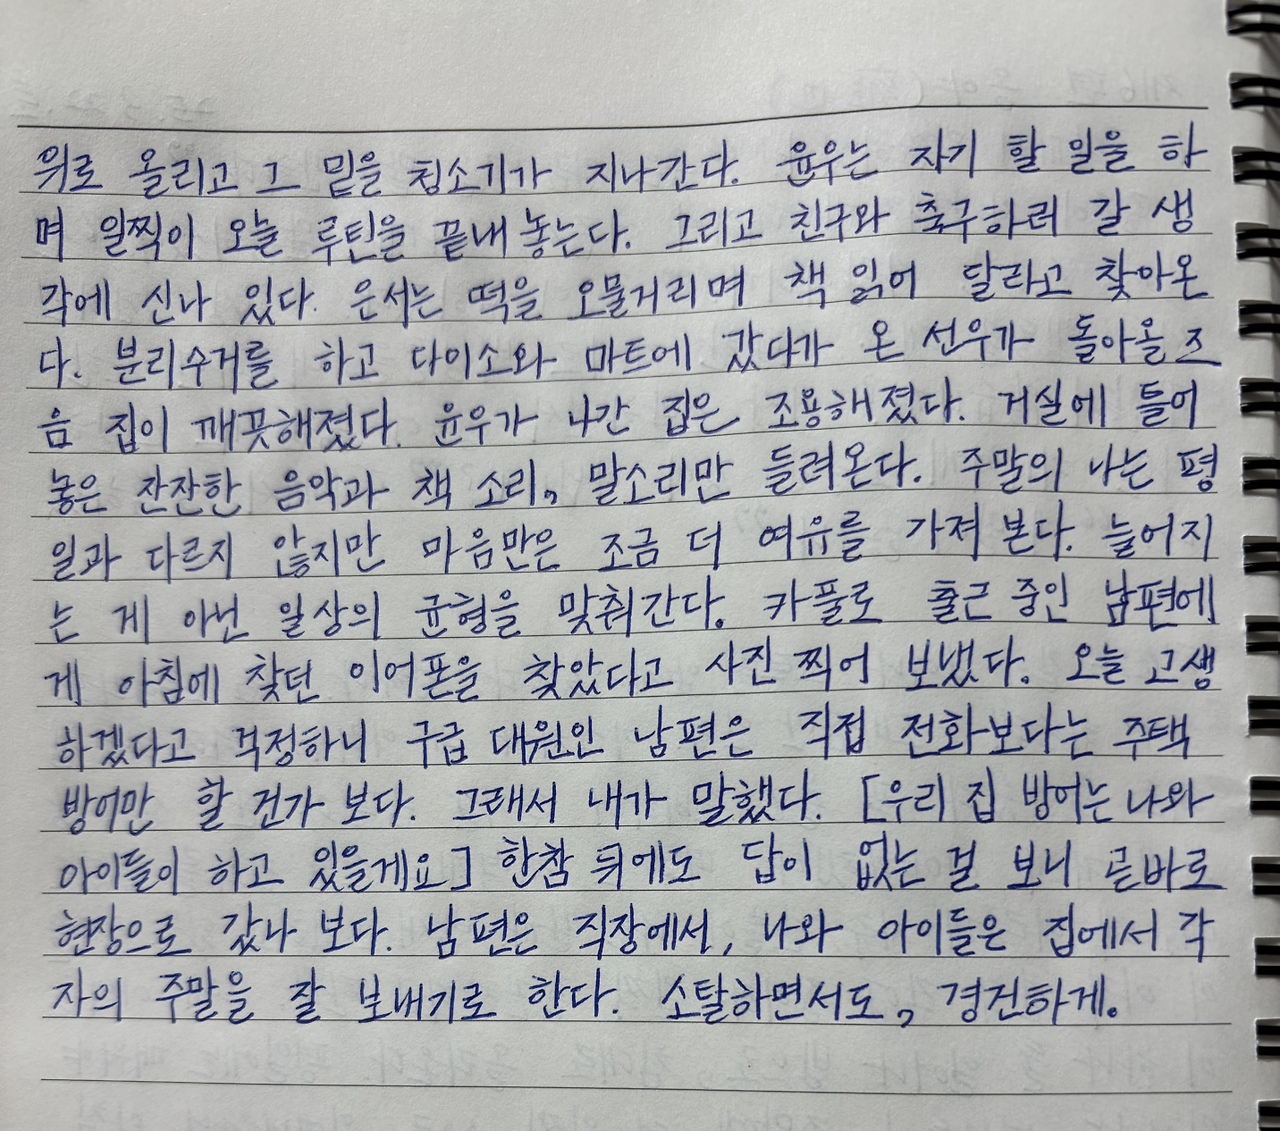 위로 올리고 그 밑을 청소기가 지나간다. 윤우는 자기 할 일을 하
며 일찍이 오늘 루틴을 끝내 놓는다. 그리고 친구와 축구하러 갈 생
각에 신나 있다. 은서는 떡을 오물거리며 책 읽어 달라고 찾아온
다. 분리수거를 하고 다이소와 마트에 갔다가 온 선우가 돌아올 즈
음 집이 깨끗해졌다. 윤우가 나간 집은 조용해졌다. 거실에 틀어
놓은 잔잔한 음악과 책 소리, 말소리만 들려온다. 주말의 나는 평
일과 다르지 않지만 마음만은 조금 더 여유를 가져 본다. 늘어지
는 게 아닌 일상의 균형을 맞춰간다. 카풀로 출근 중인 남편에
게 아침에 찾던 이어폰을 찾았다고 사진 찍어 보냈다. 오늘 고생
하겠다고 걱정하니 구급 대원인 남편은 직접 전화보다는 주택
방어만 할 건가 보다. 그래서 내가 말했다. [우리 집 방어는 나와
아이들이 하고 있을게요] 한참 뒤에도 답이 없는 걸 보니 곧바로
현장으로 갔나 보다. 남편은 직장에서, 나와 아이들은 집에서 각
자의 주말을 잘 보내기로 한다. 소탈하면서도, 경건하게.